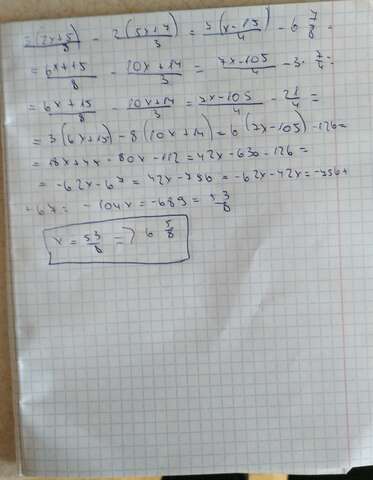 3(2x+5)/8 - 2(5x+7)/3 = 7(x-15)/4 - 6 7/8 =
= 6x+15/8 - 10x+14/3 = 7x-105/4 - 3·7/4 =
= 6x+15/8 - 10x+14/3 = 7x-105/4 - 21/4 =
= 3(6x+15) - 8(10x+14) = 6(7x-105) - 126 =
= 18x+45 - 80x - 112 = 42x - 630 - 126 =
= -62x - 67 = 42x - 756 = -62x - 42x = -756 +
+ 67 = -104x = -689 = 53/8
x = 53/8 => 6 5/8